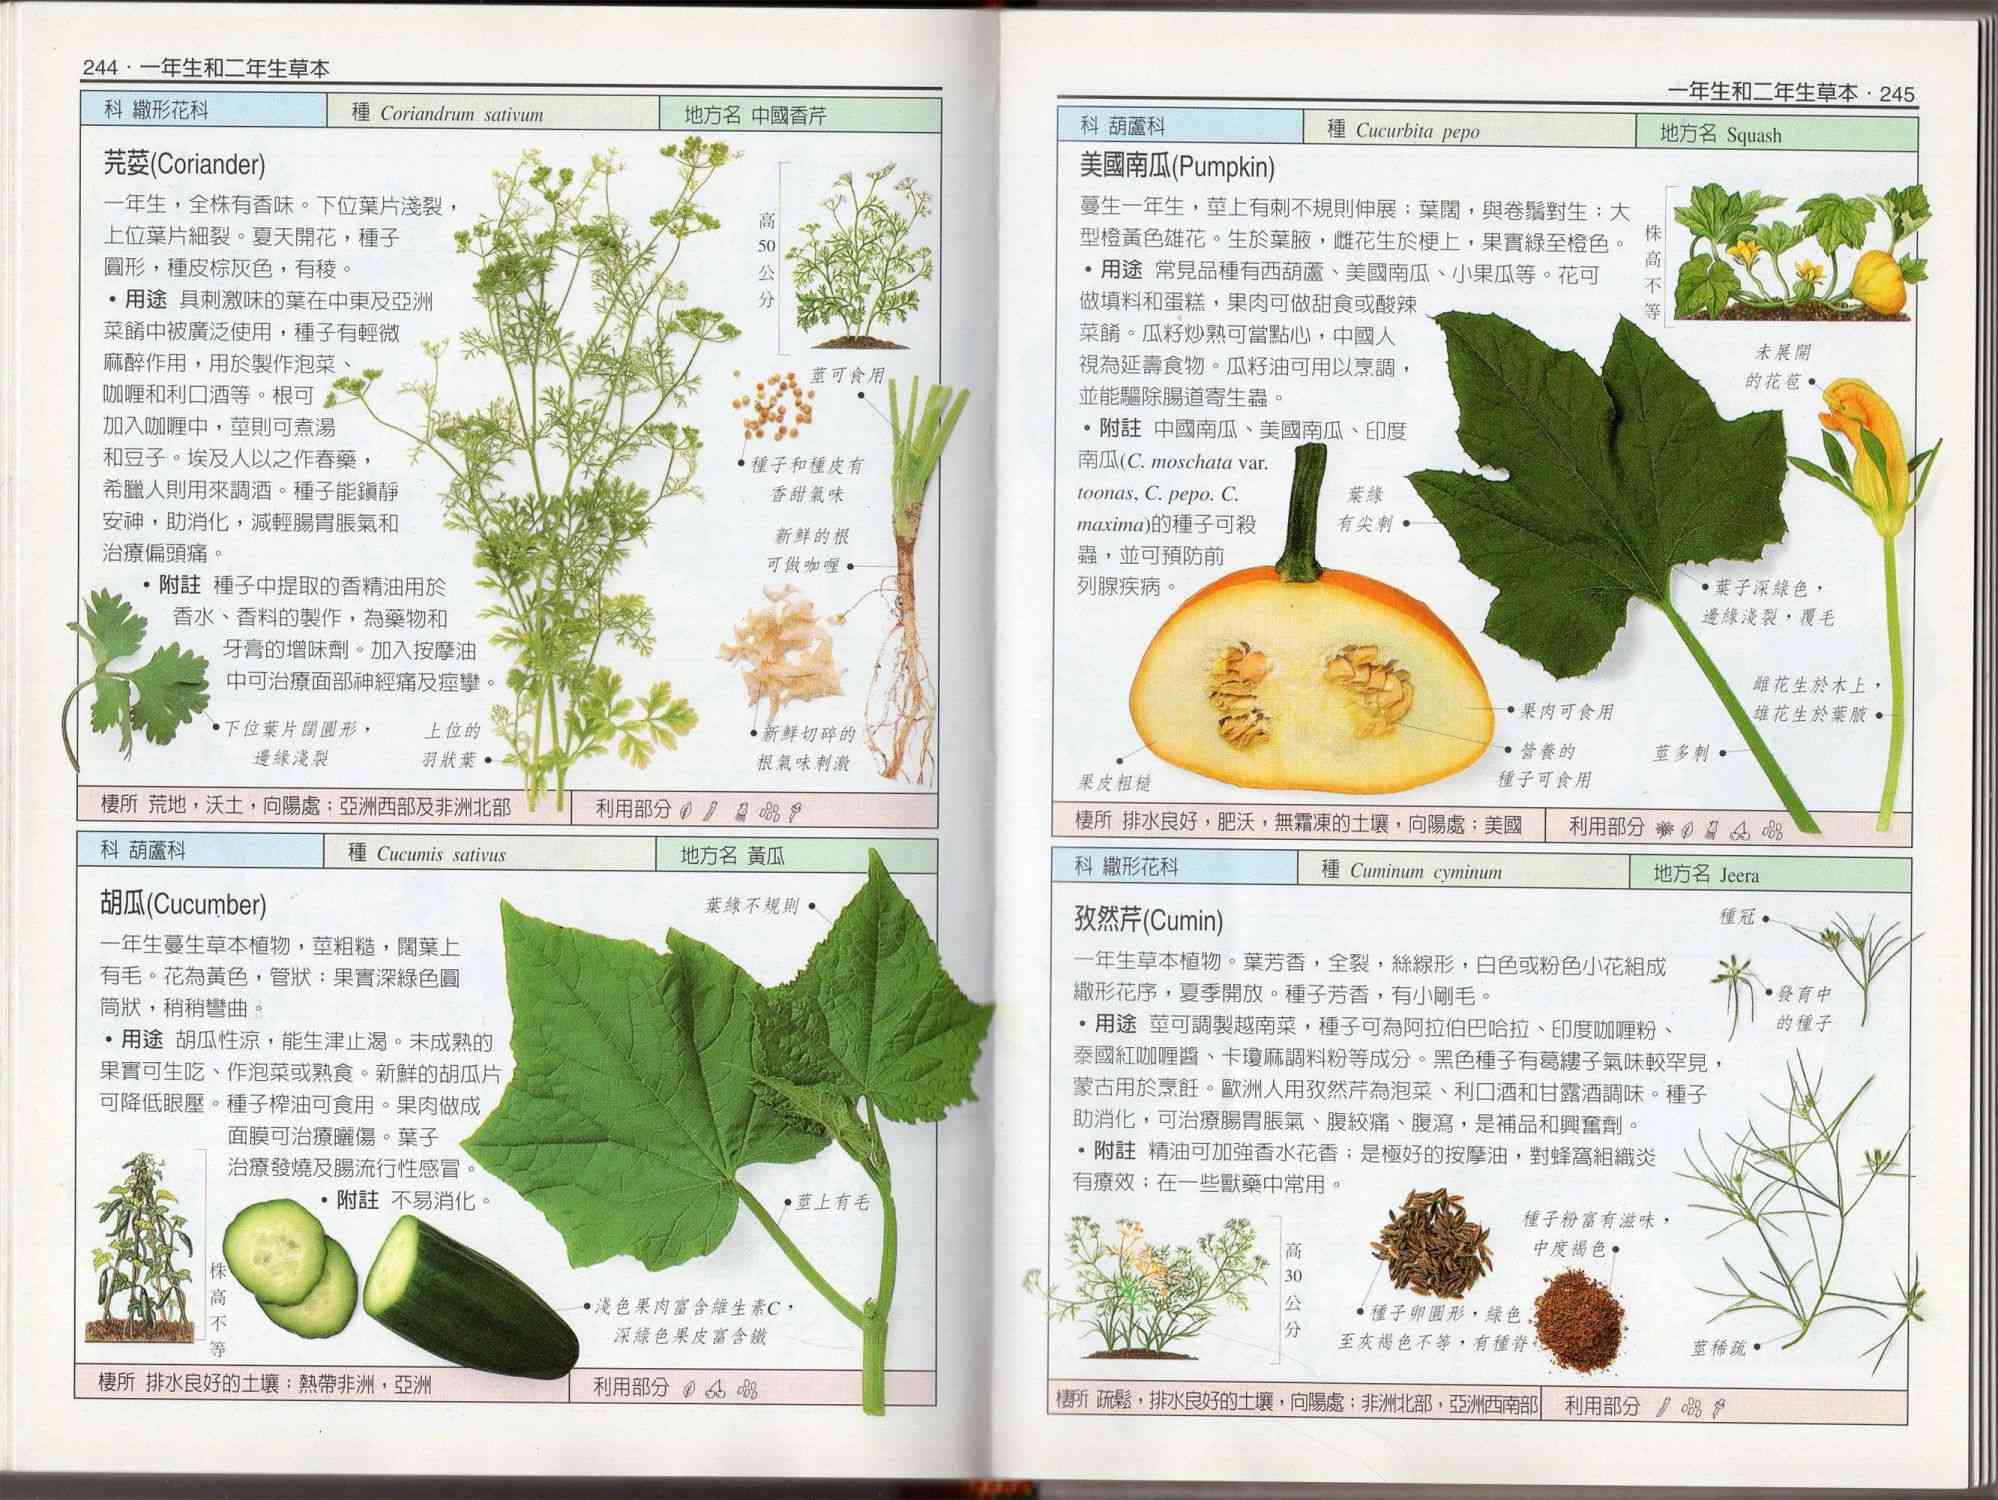 244 · 一年生和二年生草本
科 繖形花科
種 Coriandrum sativum
地方名 中國香芹
芫荽(Coriander)
一年生，全株有香味。下位葉片淺裂，
上位葉片細裂。夏天開花，種子
圓形，種皮棕灰色，有稜。
• 用途 具刺激味的葉在中東及亞洲
菜餚中被廣泛使用，種子有輕微
麻醉作用，用於製作泡菜、
咖喱和利口酒等。根可
加入咖喱中，莖則可煮湯
和豆子。埃及人以之作春藥，
希臘人則用來調酒。種子能鎮靜
安神，助消化，減輕腸胃脹氣和
治療偏頭痛。
• 附註 種子中提取的香精油用於
香水、香料的製作，為藥物和
牙膏的增味劑。加入按摩油
中可治療面部神經痛及痙攣。
高
50
公
分
莖可食用
種子和種皮有
香甜氣味
新鮮的根
可做咖喱
下位葉片闊圓形，
邊緣淺裂
上位的
羽狀葉
新鮮切碎的
根氣味刺激
棲所 荒地，沃土，向陽處；亞洲西部及非洲北部
利用部分
科 葫蘆科
種 Cucumis sativus
地方名 黃瓜
胡瓜(Cucumber)
一年生蔓生草本植物，莖粗糙，闊葉上
有毛。花為黃色，管狀；果實深綠色圓
筒狀，稍稍彎曲。
• 用途 胡瓜性涼，能生津止渴。未成熟的
果實可生吃、作泡菜或熟食。新鮮的胡瓜片
可降低眼壓。種子榨油可食用。果肉做成
面膜可治療曬傷。葉子
治療發燒及腸流行性感冒。
• 附註 不易消化。
葉緣不規則
莖上有毛
株
高
不
等
淺色果肉富含維生素C，
深綠色果皮富含鐵
棲所 排水良好的土壤；熱帶非洲，亞洲
利用部分
一年生和二年生草本 · 245
科 葫蘆科
種 Cucurbita pepo
地方名 Squash
美國南瓜(Pumpkin)
蔓生一年生，莖上有刺不規則伸展；葉闊，與卷鬚對生；大
型橙黃色雄花。生於葉腋，雌花生於梗上，果實綠至橙色。
• 用途 常見品種有西葫蘆、美國南瓜、小果瓜等。花可
做填料和蛋糕，果肉可做甜食或酸辣
菜餚。瓜籽炒熟可當點心，中國人
視為延壽食物。瓜籽油可用以烹調，
並能驅除腸道寄生蟲。
• 附註 中國南瓜、美國南瓜、印度
南瓜(C. moschata var.
toonas, C. pepo. C.
maxima)的種子可殺
蟲，並可預防前
列腺疾病。
株
高
不
等
未展開
的花苞
葉緣
有尖刺
葉子深綠色，
邊緣淺裂，覆毛
雌花生於木上，
雄花生於葉腋
果肉可食用
營養的
種子可食用
莖多刺
果皮粗糙
棲所 排水良好，肥沃，無霜凍的土壤，向陽處；美國
利用部分
科 繖形花科
種 Cuminum cyminum
地方名 Jeera
孜然芹(Cumin)
一年生草本植物。葉芳香，全裂，絲線形，白色或粉色小花組成
繖形花序，夏季開放。種子芳香，有小剛毛。
• 用途 莖可調製越南菜，種子可為阿拉伯巴哈拉、印度咖喱粉、
泰國紅咖喱醬、卡瓊麻調料粉等成分。黑色種子有葛縷子氣味較罕見，
蒙古用於烹飪。歐洲人用孜然芹為泡菜、利口酒和甘露酒調味。種子
助消化，可治療腸胃脹氣、腹絞痛、腹瀉，是補品和興奮劑。
• 附註 精油可加強香水花香；是極好的按摩油，對蜂窩組織炎
有療效；在一些獸藥中常用。
種冠
發育中
的種子
高
30
公
分
種子粉富有滋味，
中度褐色
種子卵圓形，綠色
至灰褐色不等，有種脊
莖稀疏
棲所 疏鬆，排水良好的土壤，向陽處；非洲北部，亞洲西南部
利用部分